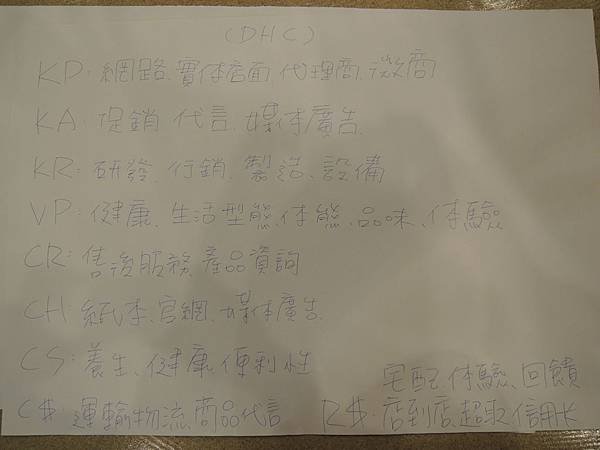 (DHC)
KP: 網路、實体店面、代理商、微商
KA: 促銷、代言、媒体廣告
KR: 研發、行銷、製造、設備
VP: 健康、生活型態、体態、品味、体驗
CR: 售後服務、產品資詢
CH: 紙本、官網、媒体廣告
CS: 養生、健康、便利性
宅配、体驗、回饋
C$ 運輸物流、商品代言
R$: 店到店、超取、信用卡